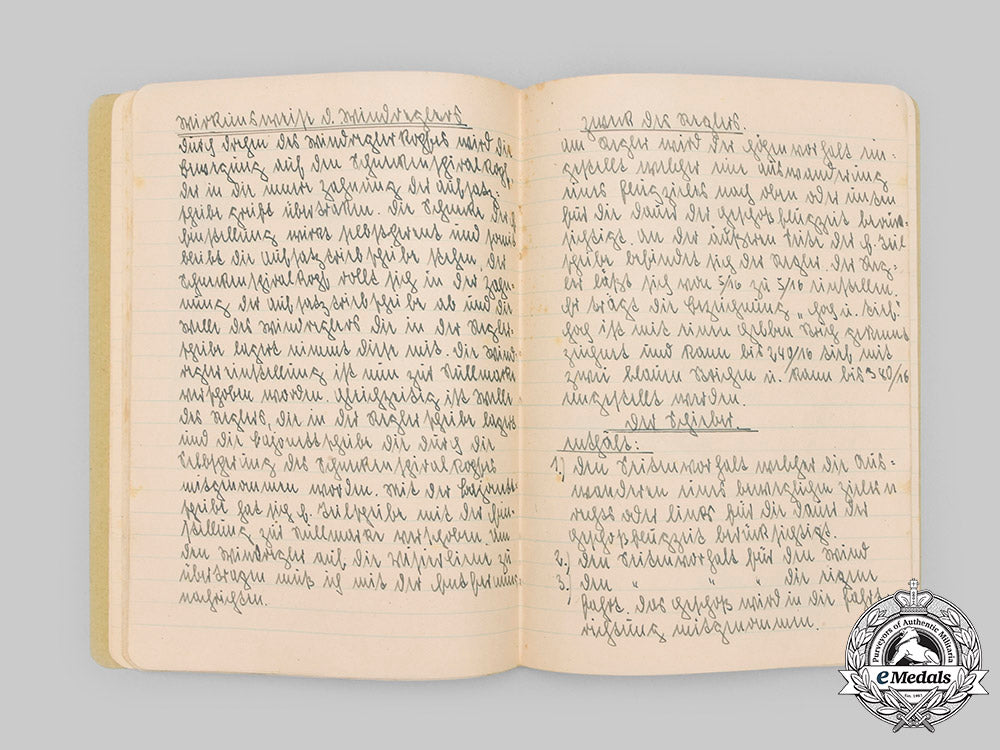 Wirkunsweise d. Windreglers
Durch drehen des Windreglerkopfes wird die
Bewegung auf den Schneckenspiralkopf,
der in die innere Zahnung der Aufsatz-
scheibe greift übertraken. Die Schnecke der
Einstellung wirkt selbstsperent und somit
bleibt die Aufsatztriebscheibe stehen, der
Schneckenspiralkopf rollt sich in der Zah-
nung der Aufsatztriebscheibe ab und die
Welle des Windreglers die in der Regler-
scheibe lagert nimmt diese mit. Die Wind-
reglereinstellung ist nun zur Nullmarke
verschoben worden. Gleichzeitig ist Welle
des Reglers, die in der Reglerscheibe lagert
und die Bajonettscheibe die durch die
Selbstsperung des Schneckenspiralkopfes
mitgenommen worden. Mit der Bajonett-
scheibe hat sich h. Zielscheibe mit der Ein-
stellung zur Nullmarke verschoben. Um
den Windregler auf die Visierlinie zu
übertragen muß ich mit der Entfernung
nachrichten.
Zweck des Reglers.
Am Regler wird der Höhenvorhalt ein-
gestellt welcher eine Auswanderung
eines Flugzieles nach oben oder unten
für die Dauer der Geschoßflugzeit berück-
sichtigt. An der äußeren Seite der h. Ziel
scheibe befindet sich der Regler. Der Reg-
ler läßt sich von 5/16 zu 5/16 einstellen.
Er trägt die Bezeichnung „hoch u. tief"
hoch ist mit einen gelben Strich gekennt
zeichnet und kann bis 240/16 tief mit
zwei blauen Strichen u. kann bis 340/16
eingestellt werden.
Der Schieber.
enthält:
1.) Den Seitenvorhalt welcher die Aus-
wanderen eines beweglichen Zieles n.
rechts oder links für die Dauer der
Geschoßflugzeit berücksichtigt.
2.) Den Seitenvorhalt für den Wind
3.) Den " " " die eigene
Fahrt. Das Geschoß wird in die Fahrt
richtung mitgenommen.
Purveyors of Authentic Militaria
eMedals